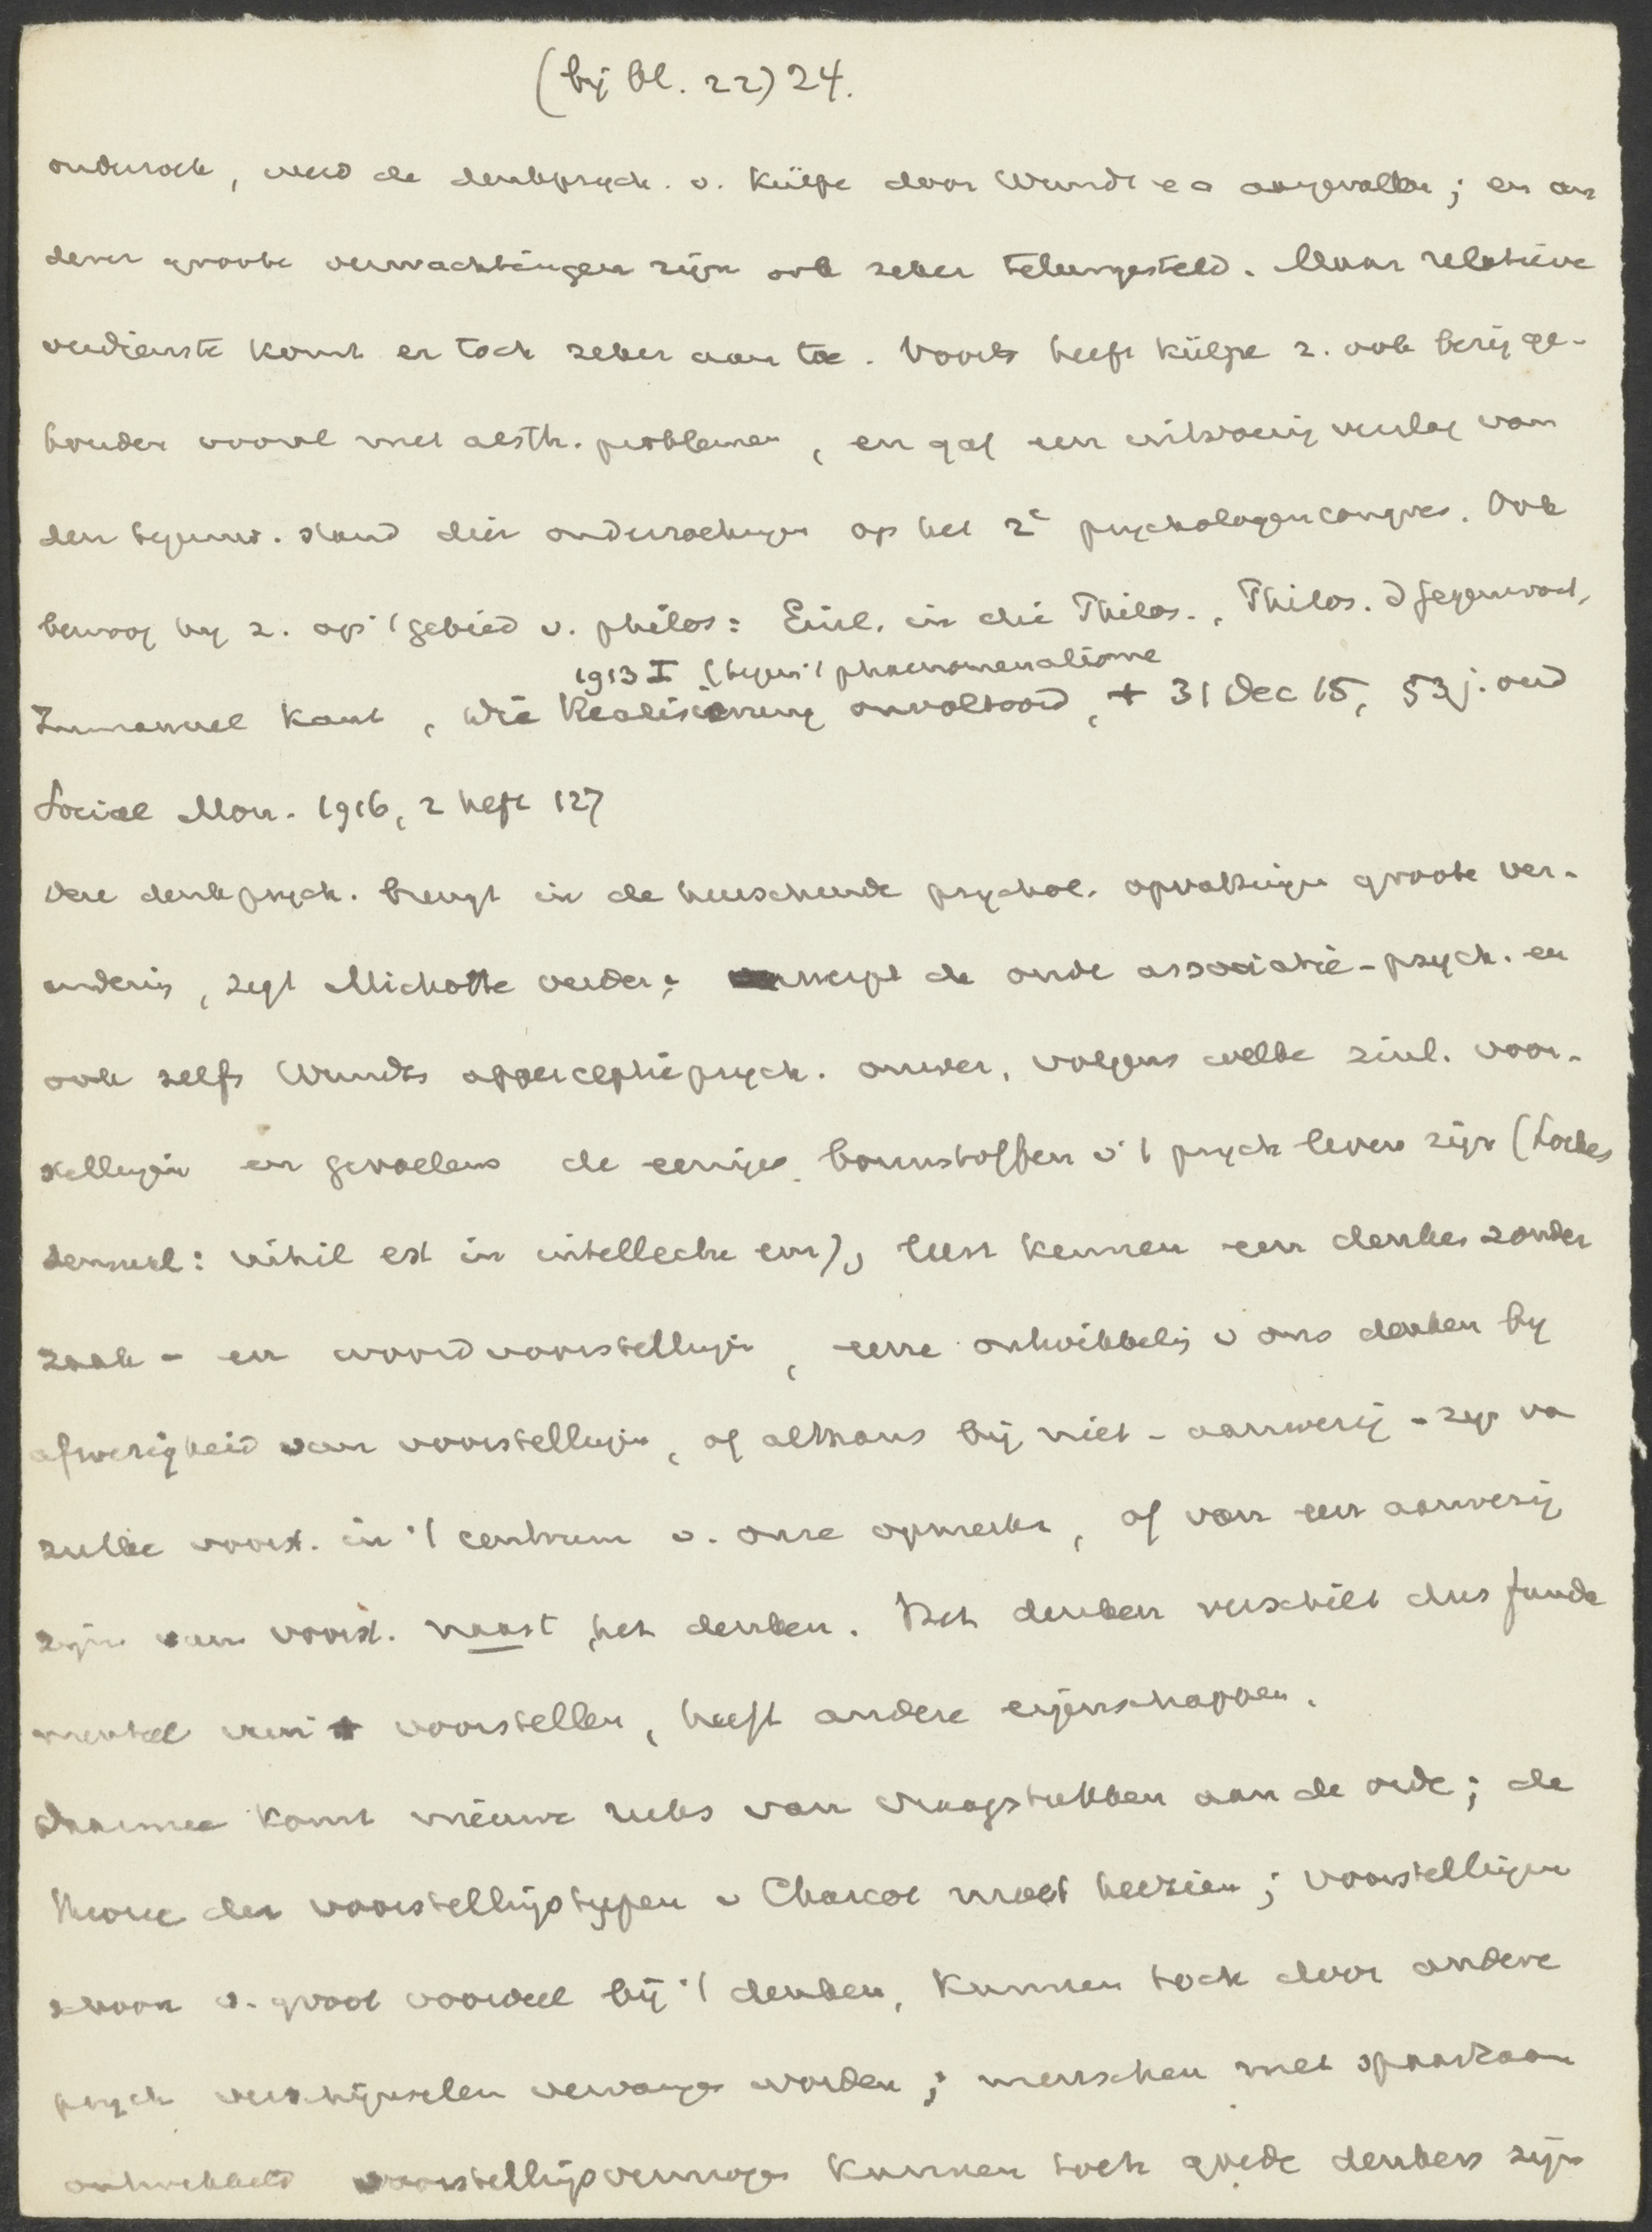 (bij bl. 22) 24.
onderzoek, werd de denkpsych. v. Külpe door Wundt e a aangevallen; en an
derer groote verwachtingen zijn ook zeker teleurgesteld. Maar relatieve
verdienste komt er toch zeker aan toe. Voorts heeft Külpe z. ook bezig ge-
houden vooral met aesth. problemen, en gaf een uitvoerig verslag van
den tegenw. stand dier onderzoekingen op het 2e psychologencongres. Ook
bewoog hij z. op 't gebied v. philos: Einl. in die Philos., Philos. d Gegenwart,
1913 I (tegen 't phaenomenalisme
Immanuel Kant, die Realisierung onvoltooid, † 31 Dec 15, 53 j. oud
Social Mon. 1916, 2 heft 127
Deze denkpsych. brengt in de heerschende psychol. opvattingen groote ver-
andering, zegt Michotte verder; werpt de oude associatie-psych. en
ook zelfs Wundts apperceptiepsych. omver, volgens welke zinl. voor-
stellingen en gevoelens de eenige bouwstoffen v 't psych leven zijn (Lockes
sensual: nihil est in intellectu enz), leert kennen een denken zonder
zaak- en woordvoorstellingen, eene ontwikkeling v ons denken bij
afwezigheid van voorstellingen, of althans bij niet-aanwezig-zijn van
zulke voorst. in 't centrum v. onze opmerkz, of van een aanwezig
zijn van voorst. naast het denken. Het denken verschilt dus funda
menteel van 't voorstellen, heeft andere eigenschappen.
Daarmee komt nieuwe reeks van vraagstukken aan de orde; de
theorie der voorstellingstypen v Charcot moet herzien; voorstellingen
schoon v. groot voordeel bij 't denken, kunnen toch door andere
psych verschijnselen vervangen worden; menschen met spaarzaam
ontwikkeld voorstellingsvermogen kunnen toch goede denkers zijn